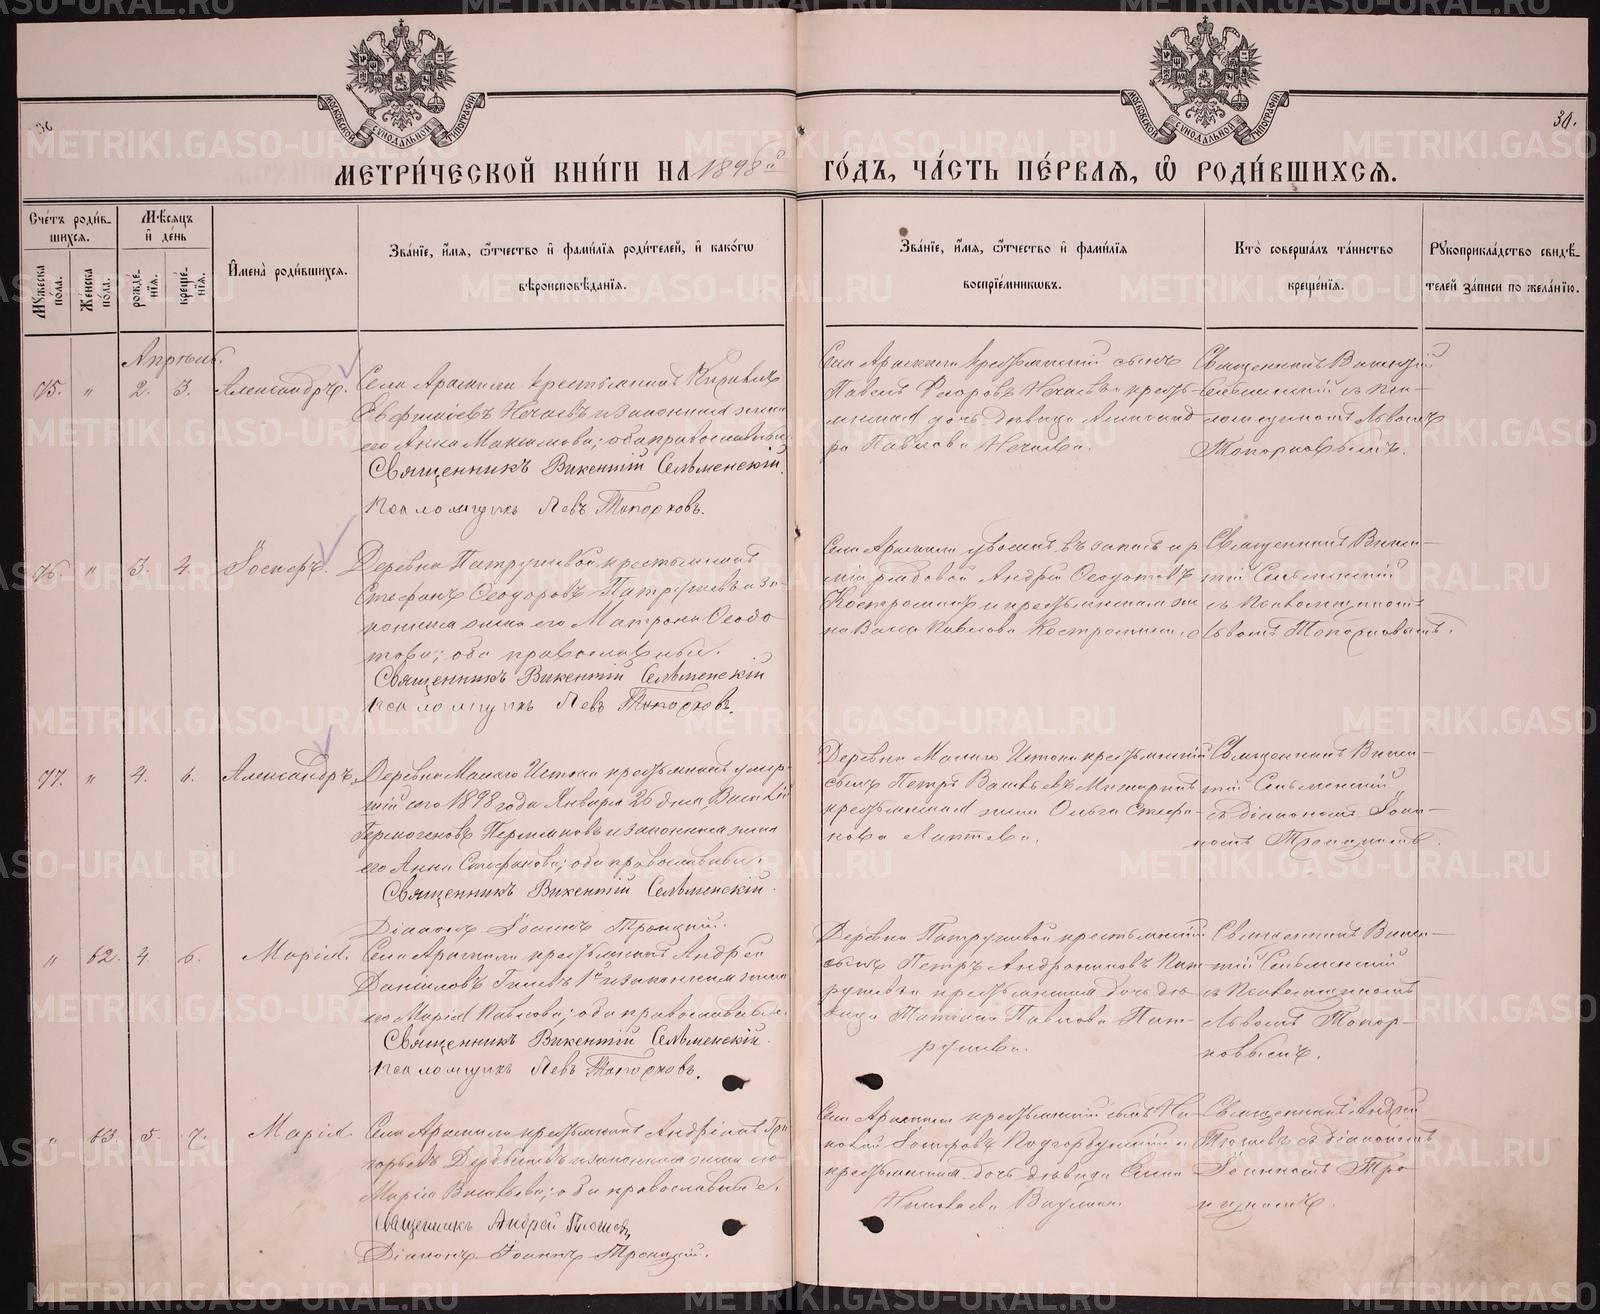 30.
МЕТРИ́ЧЕСКОЙ КНИ́ГИ НА 1898й ГО́ДЪ, ЧА́СТЬ ПЕ́РВАЯ, Ѽ РОДИ́ВШИХСЯ.
МОСКОВСКОЙ СУНОДАЛЬНОЙ ТИПОГРАФІИ
МОСКОВСКОЙ СУНОДАЛЬНОЙ ТИПОГРАФІИ
Сче́тъ роди́вшихся.
Мꙋ́жеска по́ла.
Же́нска по́ла.
Мѣ́сяцъ и҆ де́нь
рожде́нїѧ.
креще́нїѧ.
И҆мена̀ роди́вшихсѧ.
Зва́нїе, и҆́мѧ, ѻ҆́тчество и҆ фами́лїѧ роди́телей, и҆ како́гѡ вѣроисповѣ́данїѧ.
Зва́нїе, и҆́мѧ, ѻ҆́тчество и҆ фами́лїѧ воспрїе́мникѡвъ.
Кто̀ соверша́лъ та́инство креще́нїѧ.
Рꙋкоприкла́дство свидѣ́телей за́писи по жела́нїю.
Апрѣль.
75. " 2. 3. Александръ.
Села Арамили крестьянинъ
Нечаевъ и законная жена
его Анна Максимова; оба православные.
Священникъ Викентій Сельменскій.
Псаломщикъ Левъ Топорковъ.
Села Арамили крестьянскій сынъ
Павелъ Ѳедоровъ Нечаевъ и кресть-
янская дочь дѣвица Александ
ра Павлова Нечаева.
Священникъ Викентій
Сельменскій съ Пса-
ломщикомъ Львомъ
Топорковымъ.
76. " 3. 4. Іосифъ.
Деревни Патрушевой крестьянинъ
Стефанъ Ѳеодоровъ Патрушевъ и за-
конная жена его Матрона Ѳеодо
това; оба православные.
Священникъ Викентій Сельменскій
Псаломщикъ Левъ Топорковъ.
Села Арамили уволен. въ запасъ ар
міи рядовой Андрей Ѳеодотовъ
Костромин и крестьянская же
на Васса Павлова Костромина.
Священникъ Викен-
тій Сельменскій
съ Псаломщикомъ
Львомъ Топорковымъ.
77. " 4. 6. Александръ.
Деревни Малаго Истока крестьянинъ умер-
шій сего 1898 года Января 26 дня Василій
Гермогеновъ Пермяковъ и законная жена
его Анна Стефанова; оба православные.
Священникъ Викентій Сельменскій.
Діаконъ Іоаннъ Троицкій.
Деревни Малаго Истока крестьянскій
сынъ Петръ Васильевъ
крестьянская жена Ольга Стефа-
нова Лаптева.
Священникъ Викен-
тій Сельменскій
съ діакономъ Іоан-
номъ Троицкимъ.
" 62. 4. 6. Марія.
Села Арамили крестьянинъ Андрей
Даниловъ 1й и законная жена
его Марія Павлова; оба православные.
Священникъ Викентій Сельменскій.
Псаломщикъ Левъ Топорковъ.
Деревни Патрушевой крестьянскій
сынъ Петръ Андрониковъ Пат
рушевъ и крестьянская дочь дѣ-
вица Татіана Павлова Пат-
рушева.
Священникъ Викен-
тій Сельменскій
съ Псаломщикомъ
Львомъ Топор-
ковымъ.
" 63. 5. 7. Марія.
Села Арамили крестьянинъ Андреанъ Гри
горьевъ и законная жена его
Марія Васильева; оба православные.
Священникъ Андрей
Діаконъ Іоаннъ Троицкій.
Села Арамили крестьянскій сынъ Ни-
колай
крестьянская дочь дѣвица
Николаева
Священникъ Андрей
съ діакономъ
Іоанномъ Тро
ицкимъ.
METRIKI.GASO-URAL.RU